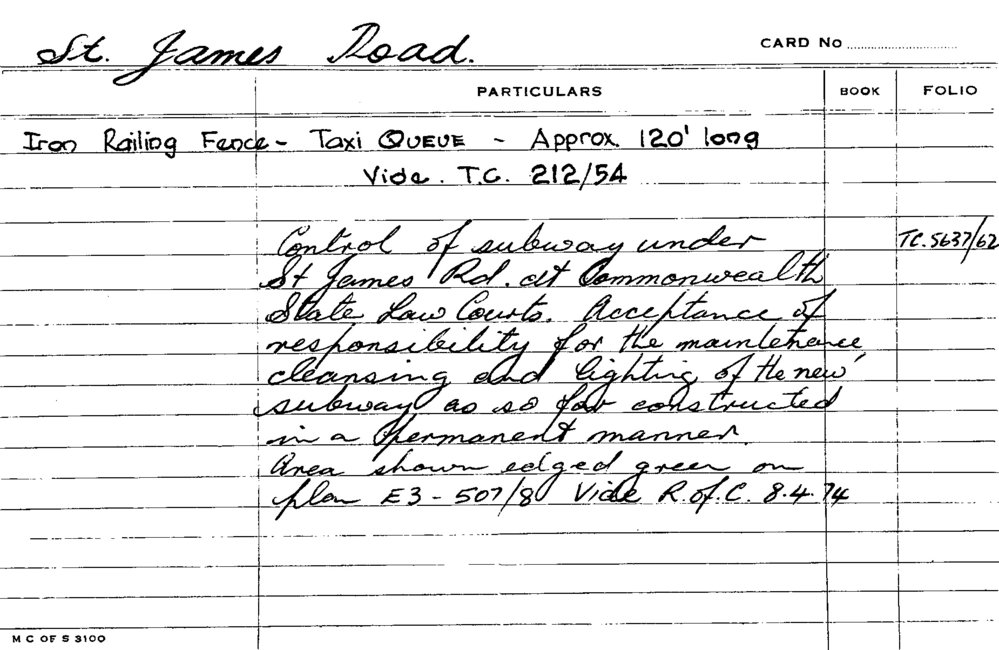 St. James Road.
CARD No
PARTICULARS BOOK FOLIO
Iron Railing Fence - Taxi QUEUE - Approx. 120' long
Vide. T.C. 212/54
Control of subway under TC.5637/62
St James Rd. at Commonwealth
State Law Courts. Acceptance of
responsibility for the maintenance,
cleansing and lighting of the new
subway as so far constructed
in a permanent manner.
Area shown edged green on
plan E3-507/8 Vide R.of.C. 8.4.74
M C OF S 3100